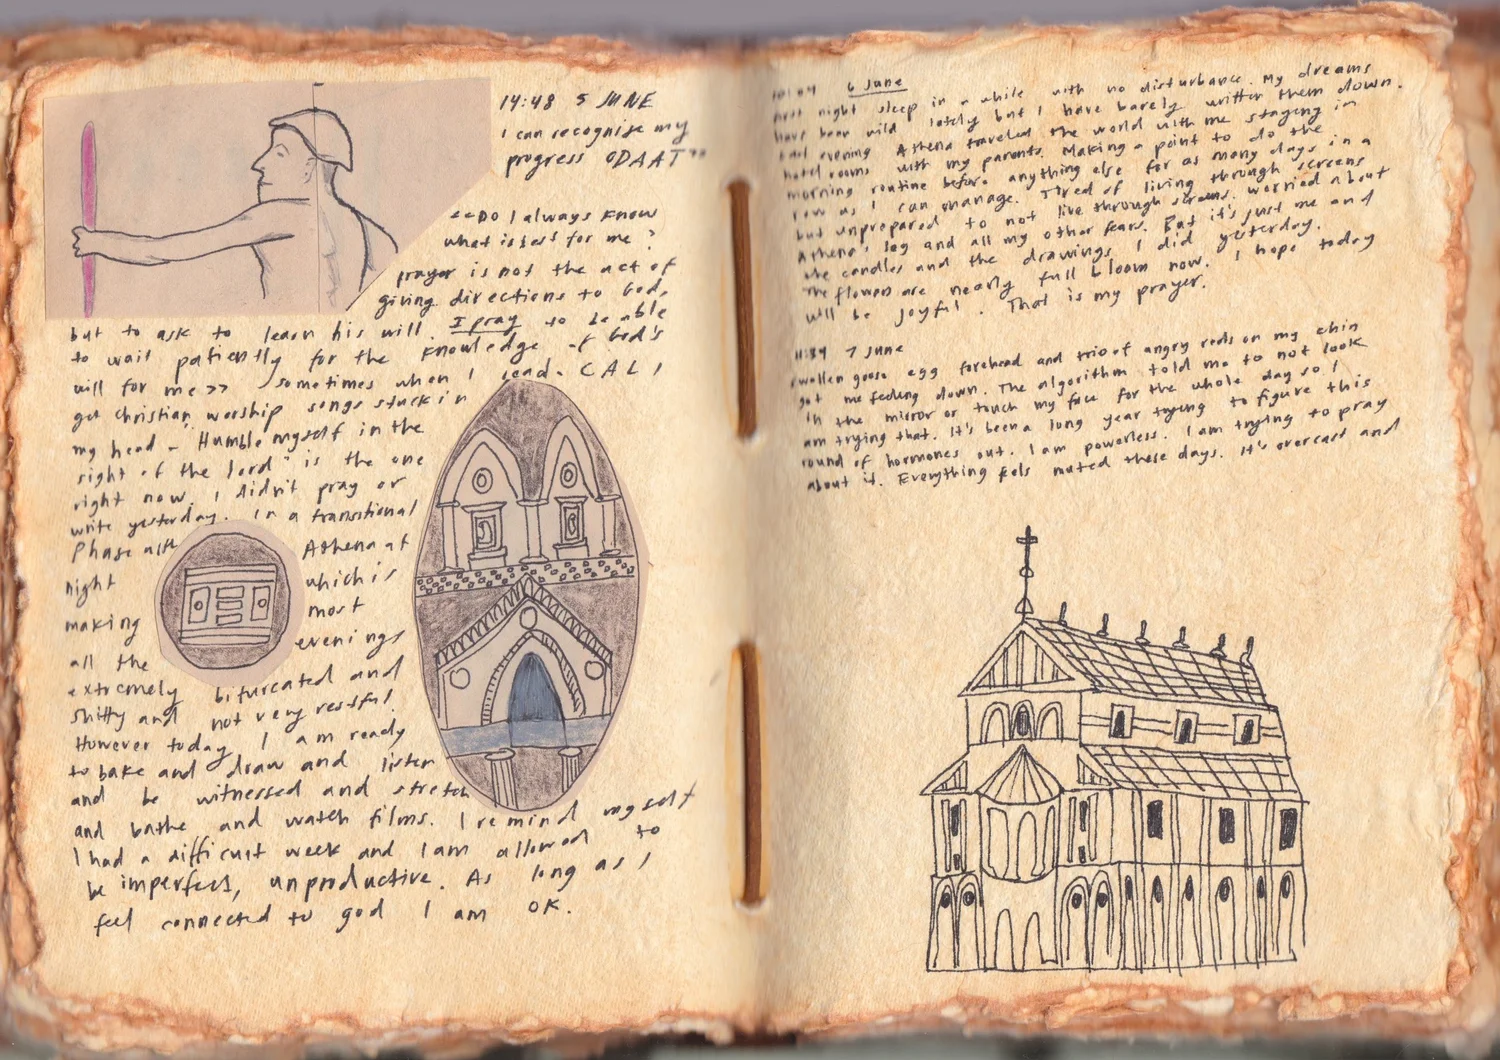 14:48 5 JUNE
I can recognise my
progress ODAAT"
<<Do I always know
what is best for me?
prayer is not the act of
giving directions to God,
but to ask to learn his will. I pray to be able
to wait patiently for the knowledge of God's
will for me>> sometimes when I read CAL I
get christian worship songs stuck in
my head - "Humble myself in the
sight of the lord" is the one
right now. I didn't pray or
write yesterday. In a transitional
Phase with Athena at
night which is
making most
all the evenings
extremely bifurcated and
shitty and not very restful.
However today I am ready
to bake and draw and listen
and be witnessed and stretch
and bathe and watch films. I remind myself
I had a difficult week and I am allowed to
be imperfect, unproductive. As long as I
feel connected to god I am OK.
6 June
first night sleep in a while with no disturbance. My dreams
have been wild lately but I have barely written them down.
Last evening Athena traveled the world with me staying in
hotel rooms with my parents. Making a point to do the
morning routine before anything else for as many days in a
row as I can manage. Tired of living through screens
but unprepared to not live through screens. worried about
Athena's leg and all my other fears. But it's just me and
the candles and the drawings I did yesterday.
The flowers are nearly full bloom now. I hope today
will be joyful. That is my prayer.
7 June
swollen goose egg forehead and trio of angry reds on my chin
got me feeling down. The algorithm told me to not look
in the mirror or touch my face for the whole day so I
am trying that. It's been a long year trying to figure this
round of hormones out. I am powerless. I am trying to pray
about it. Everything feels muted these days. It's overcast and